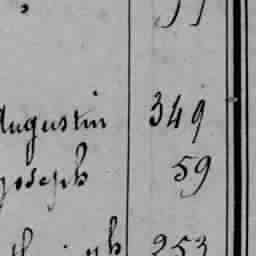 Augustin 349
Joseph 59
253